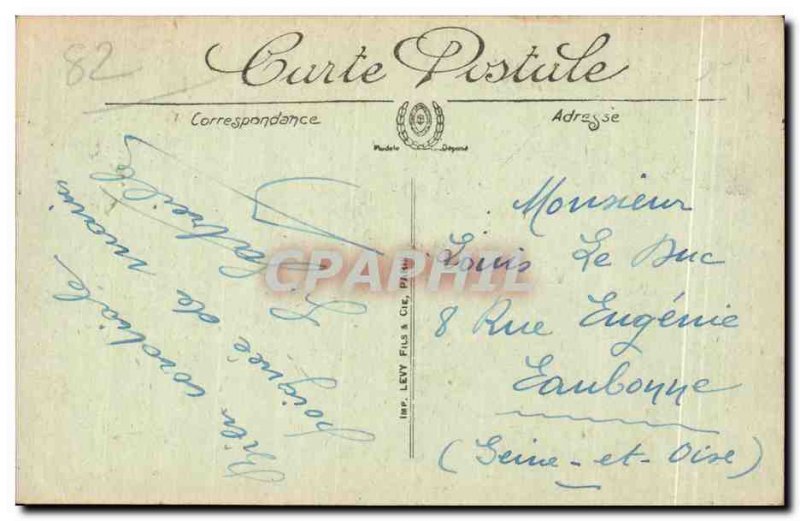 82
Carte Postale
Correspondance
Adresse
Modèle Déposé
Bien cordiale
poignée de main
Monsieur
Louis Le Duc
8 Rue Eugénie
Eaubonne
(Seine-et-Oise)
IMP. LEVY FILS & CIE, PARIS
CPAPHIL